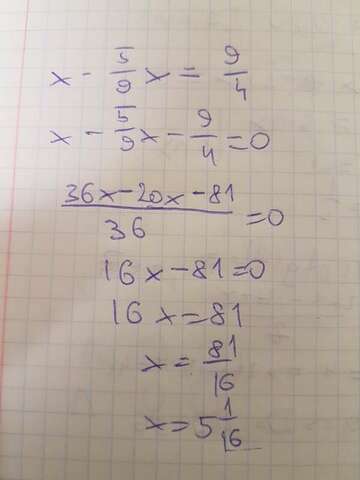 x - 5/9 x = 9/4
x - 5/9 x - 9/4 = 0
(36x - 20x - 81)/36 = 0
16x - 81 = 0
16x = 81
x = 81/16
x = 5 1/16